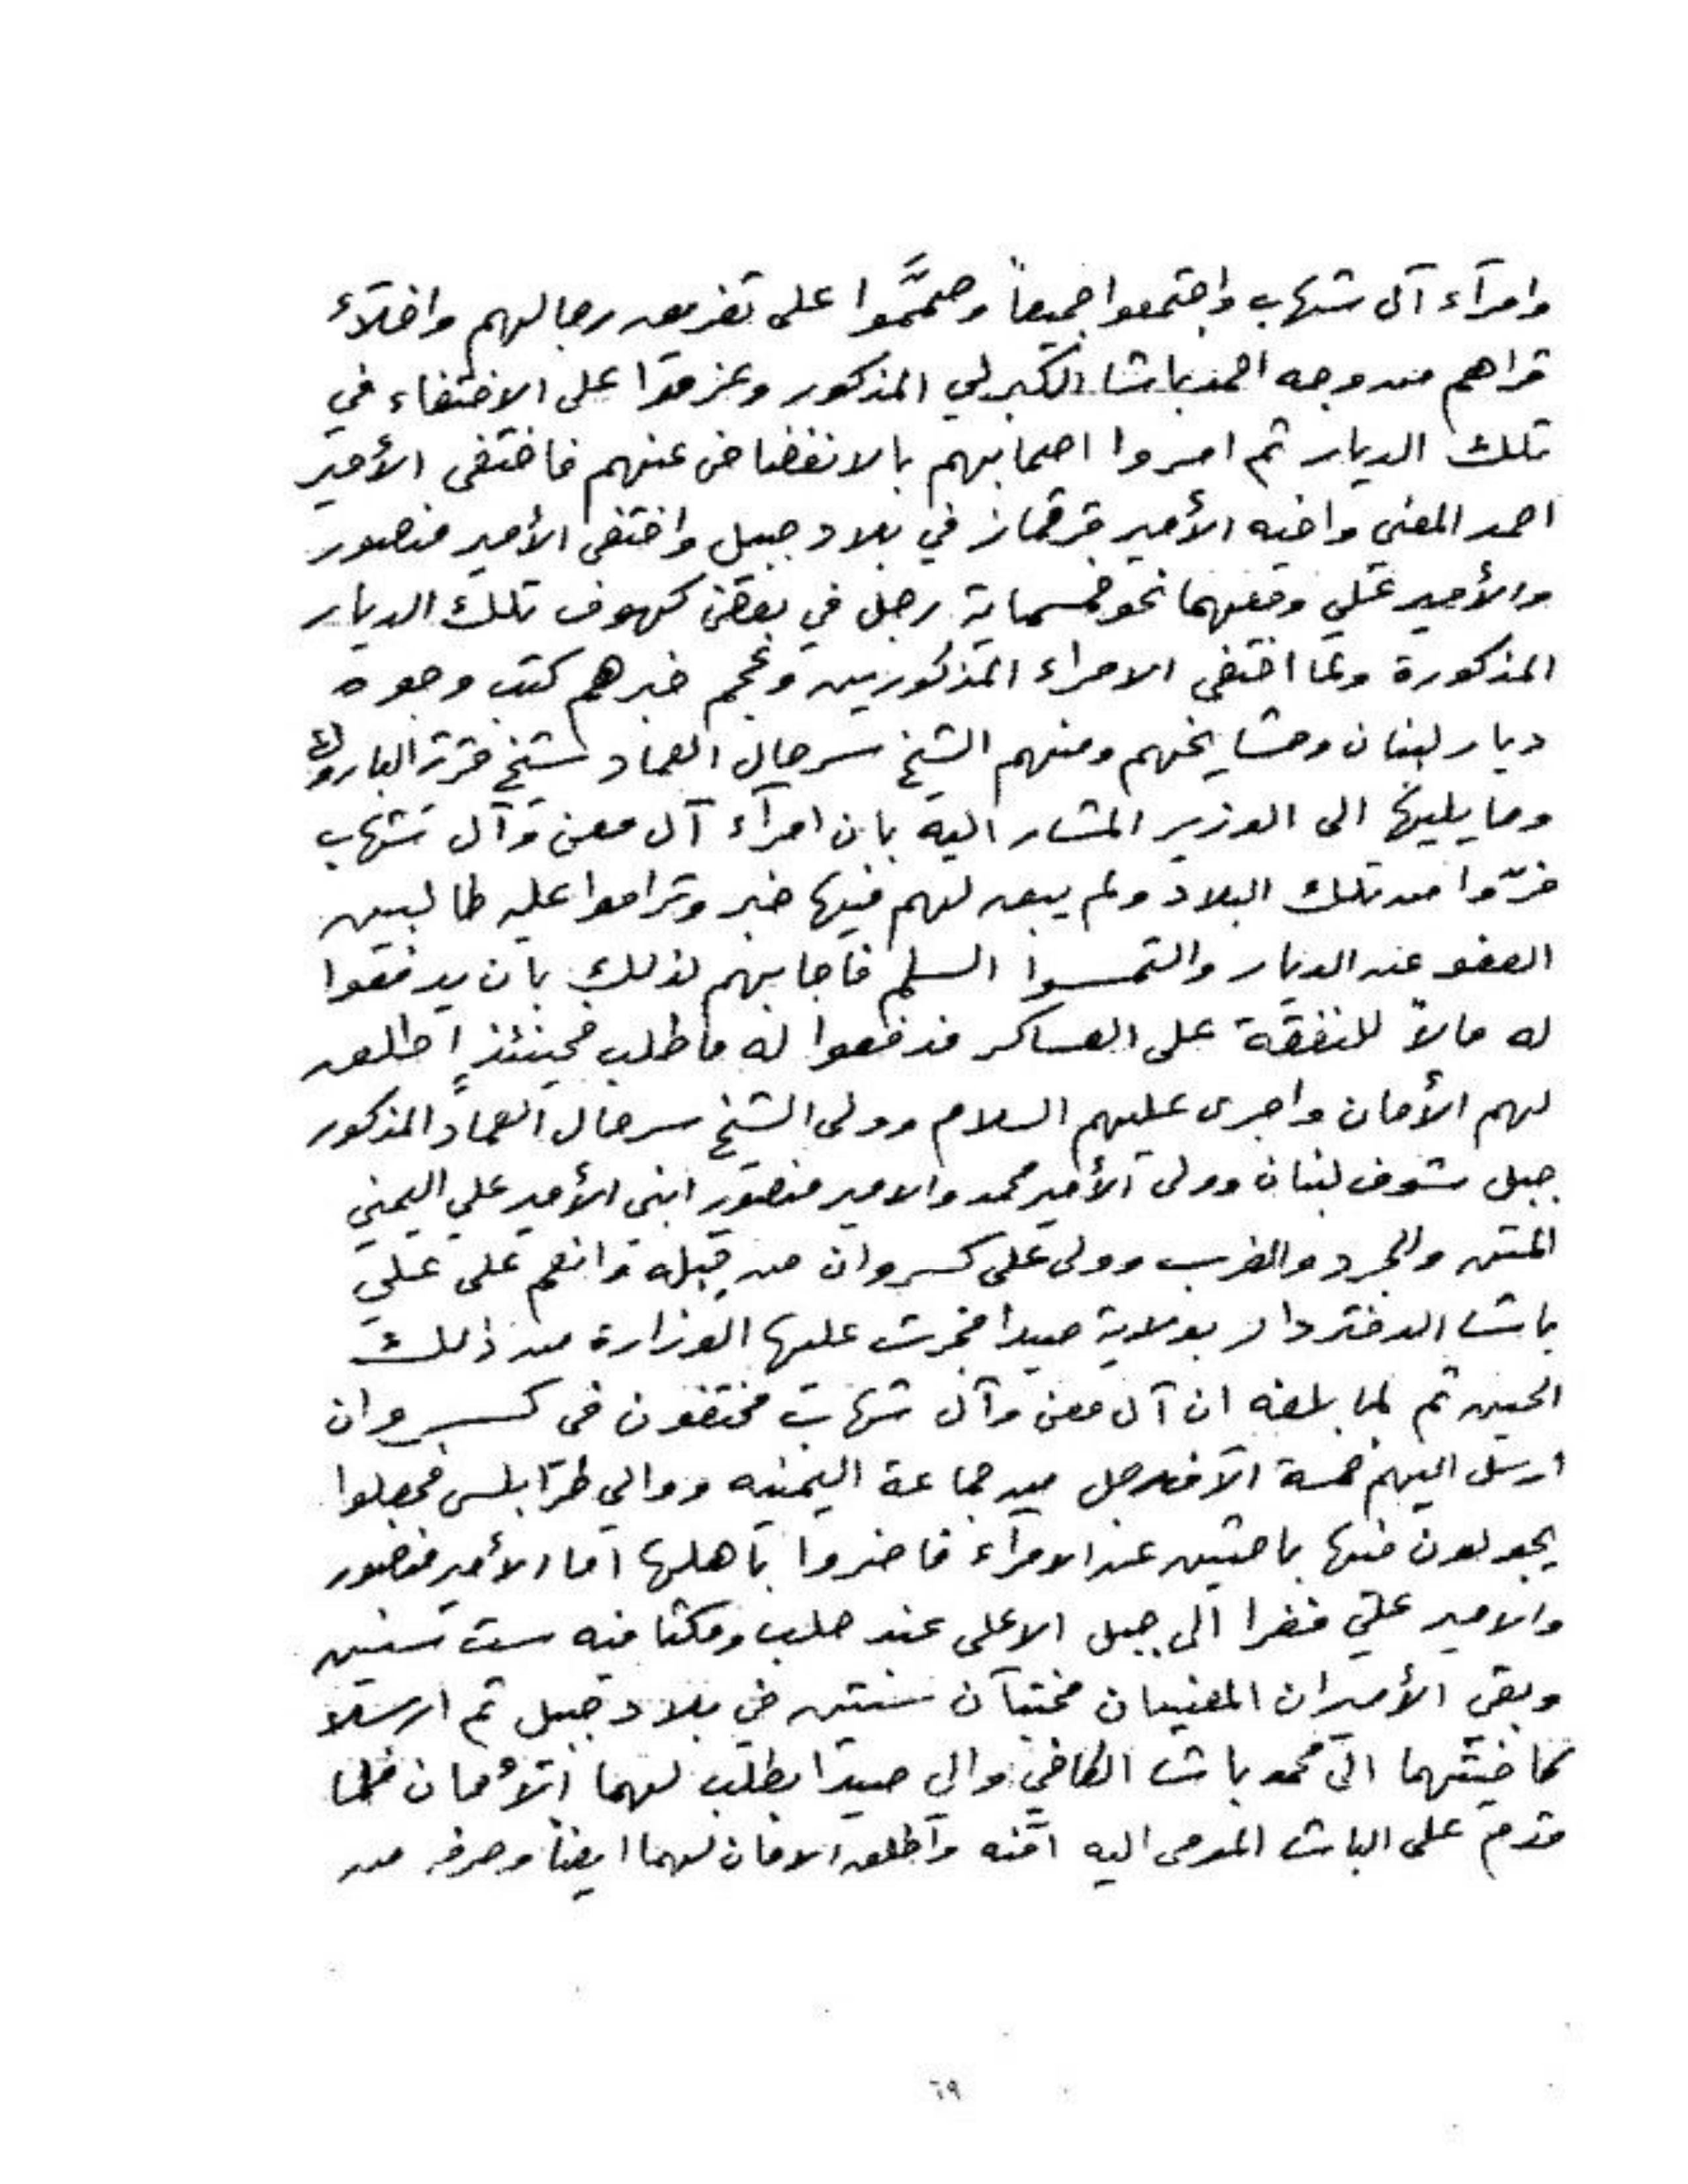 وامرآء آل شهاب واجتمعوا جميعاً وصمَّموا على تفريق رجالهم واخلآء
قراهم من وجه احمد باشا الكبرلي المذكور وعزموا على الاختفاء في
تلك الديار ثم امروا اصحابهم بالانفضاض عنهم فاختفى الأمير
احمد المعني واخيه الأمير قرقماز في بلاد جبيل واختفى الأمير منصور
والأمير علي ومعهما نحو خمسماية رجل في بعض كهوف تلك الديار
المذكورة ولما اختفى الامراء المذكورين وعجم خبرهم كتب وجوه
ديار لبنان ومشايخهم ومنهم الشيخ سرحال العماد شيخ قرية الباروك
وما يليها الى الوزير المشار اليه بان امرآء آل معن وآل شهاب
فرّوا من تلك البلاد ولم يبق لهم فيها خبر وتراموا عليه طالبين
العفو عن الديار والتمسوا السلم فاجابهم لذلك بان يدفعوا
له مالاً للنفقة على العساكر فدفعوا له ما طلب فحينئذٍ اطلق
لهم الأمان واجرى عليهم السلام وولى الشيخ سرحال العماد المذكور
جبل شوف لبنان وولى الأمير محمد والامير منصور ابني الأمير علي اليمني
المتن والجرد والغرب وولى على كسروان من قِبله وانعم على علي
باشا الدفتردار بولاية صيدا فجرت عليها الوزارة من ذلك
الحين ثم لما بلغه ان آل معن وآل شهاب مختفون في كسروان
ارسل اليهم خمسة آلاف رجل من جماعة اليمنيه ووالي طرابلس فجعلوا
يجولون فيها باحثين عن الامرآء فاضروا باهلها اما الأمير منصور
والامير علي ففرا الى جبل الاعلى عند حلب ومكثا فيه ست سنين
وبقي الأميران المعنيان مختبآن سنتين في بلاد جبيل ثم ارسلا
كاخيتهما الى محمد باشا الكافي والي صيدا يطلب لهما الأمان فلما
قدم على الباشا المومى اليه امّنه واطلق الامان لهما ايضاً وصرفه من
٦٩